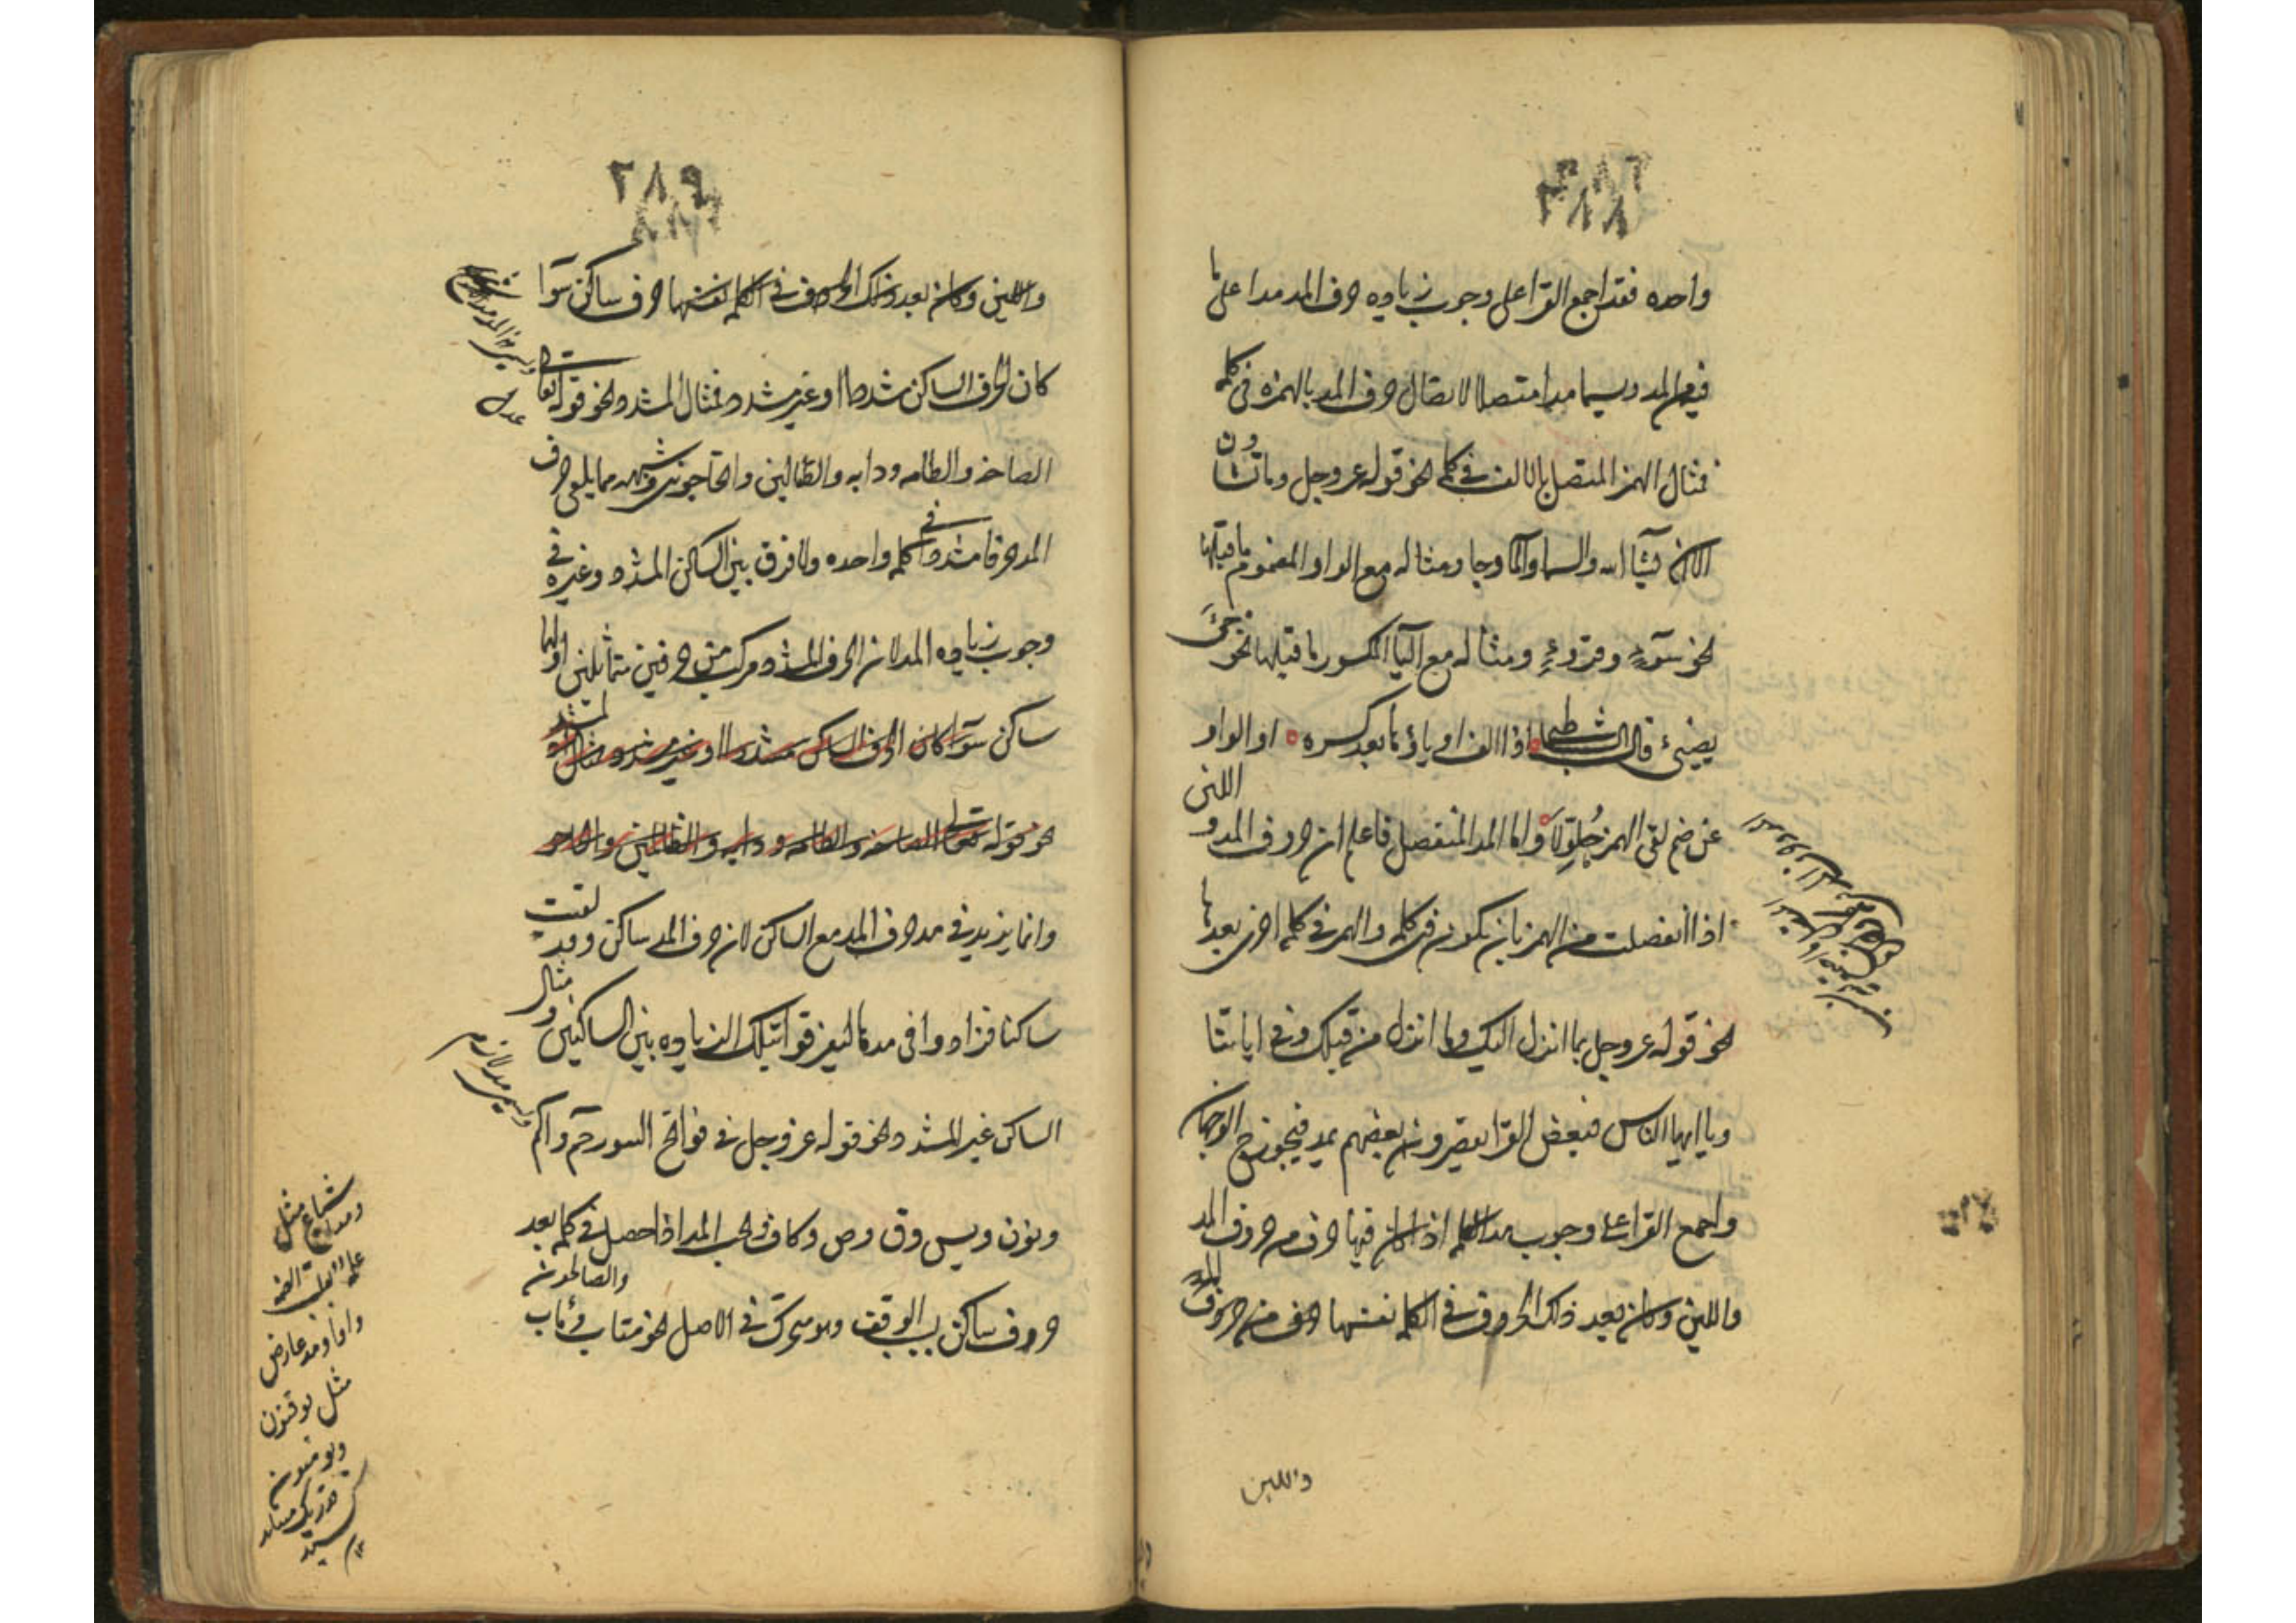 ٢٨٨
واحده فقد اجمع القرا على وجوب زياده حرف المد مدا على ما
فيهن المد ويسما مدا متصلا لاتصال حرف المد بالهمزه فى كلمه
فمثال الهمز المتصل بالالف فى كلمه نحو قوله عز وجل وما تشاون
الا ان يشآ الله والسما والما وجا ومثاله مع الواو المضموم ما قبلها
نحو سوٓء وقروء ومثاله مع اليآ المكسور ما قبلها نحو جئ
يضئ قال الشاطبى اذا الف او ياؤها بعد كسره او الواو
عن ضم لقى الهمز طولا واما المد المنفصل فاعلم ان حروف المد و اللين
اذا انفصلت من الهمز بان يكون فى كلمه والهمز فى كلمه اخرى بعدها
نحو قوله عز وجل بما انزل اليك وما انزل من قبلك وفى اياتنا
ويا ايها الناس فبعض القرا يقصرونه بعضهم يمد فيجوز ح الوجهان
واجمع القرا على وجوب مد الكلمه اذا كان فيها حرف من حروف المد
واللين وكان بعد ذلك الحروف فى الكلمه نفسها حرف من حروف المد
واللين
٢٨٩
واللين وكان بعد ذلك الحروف فى الكلمه نفسها حرف ساكن سوآ
كان الحرف الساكن مشددا او غير مشدد فمثال المشدد نحو قوله تعالى
الصاخه والطامه ودابه والضالين واتحاجونى وشبهه مما يلقى حرف
المد حرفا مشددا فى كلمه واحده ولا فرق بين الساكن المشدد وغيره فى
وجوب زياده المد لان الحرف المشدد مركب من حرفين متماثلين اولهما
ساكن سوآ كان الحرف الساكن مشددا او غير مشدد فمثال المشدد
نحو قوله تعالى الصاخه والطامه ودابه والضالين واتحاجو
وانما يزيد فى مد حرف المد مع الساكن لان حرف المد ساكن وقد لقيت
ساكنا فزادوا فى مدها ليفرقوا بتلك الزياده بين الساكنين ومثال
الساكن غير المشدد نحو قوله عز وجل فى فواتح السور حم والم
ويسمى مد لازم
ونون ويس وق وص وكاف ويجب المد اذا حصل فى كلمه بعد
حروف ساكن بسبب الوقف وهو متحرك فى الاصل نحو متاب ومأب والصالحون
مد عارض
مثل يوقنون